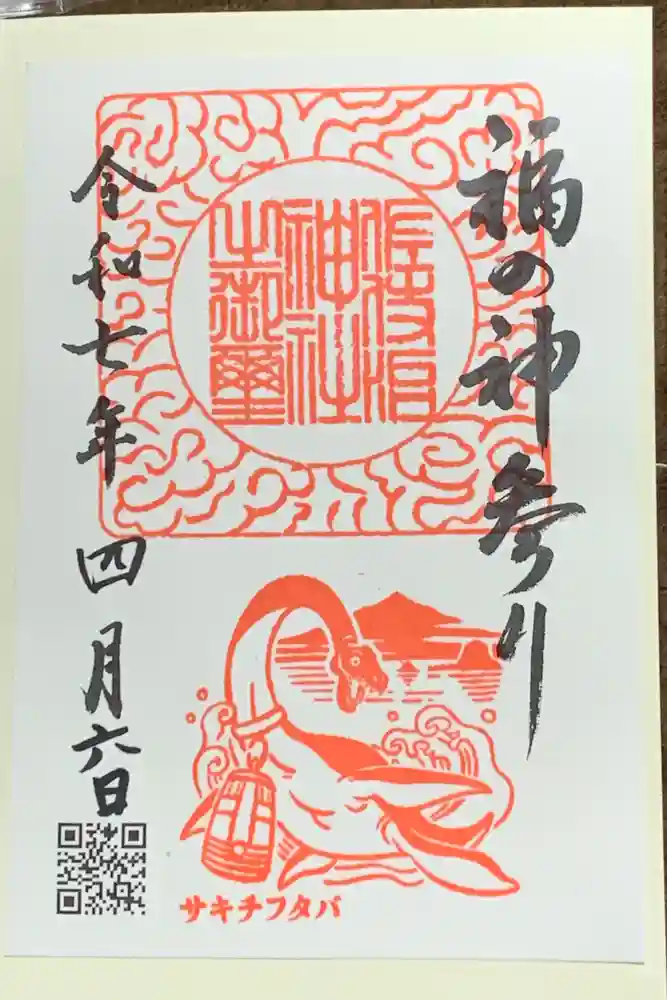 福の神参り
佐伎治
神社
之御璽
令和七年 四月六日
サキチフタバ